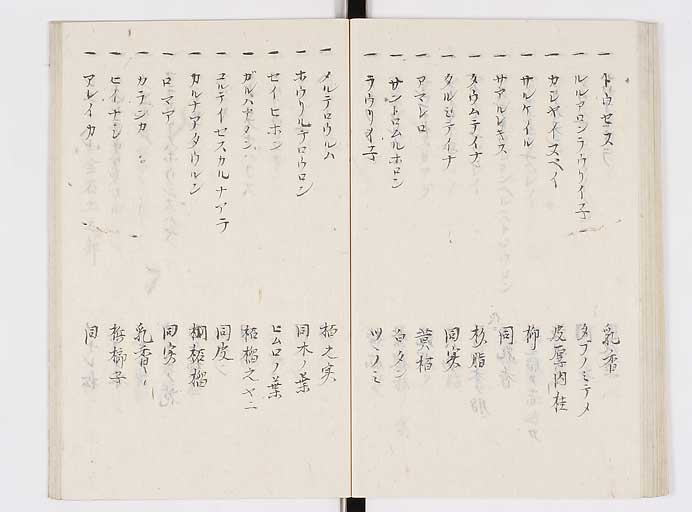 一 トウセスラ 乳香
一 ルルアロンラウリイ子 タブノミテメ
一 カシヤイヌペイ 皮厚肉桂
一 サルケイル 柳
一 サアルレキス 同
一 タウムテイナ 杉脂
一 タルヒテイナ 同実
一 アマレロ 黄栢
一 サントロムルホロン 白タン
一 ラウリイ子 ツノミ
一 メルテロウルハ 栢之実
一 ホウリルテロウロン 同木ノ葉
一 セイヒホン ヒムロノ葉
一 ガルハナノン
一 コルテイセスカルナアテ 同皮
一 カルナアタウルン 榴
一 ロマア 同実
一 カテンカ 乳香
一 ヒイナシ 梹榔子
一 アレイカ 同